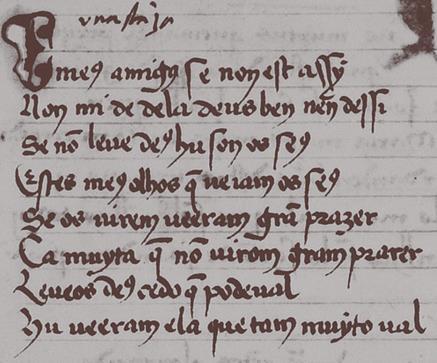 E meꝯ amigꝯ se non est assy
Non mi de dela deus ben nen dessi
Se nõ leue deꝯ hu son os seꝯ
Estes meꝯ olhos q̃ ueiam os seꝯ
Se os uirem ueeram grã prazer
Ca muyta q̃ nõ uirom gram prazer
Leueos deꝯ cedo q̃ pode ual
Hu ueeram ela que tam muyto ual